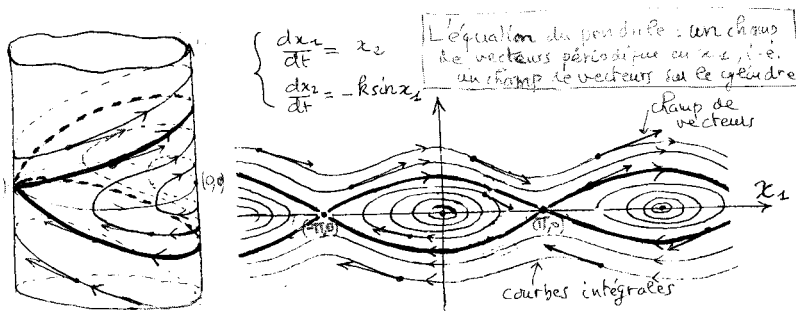 dx₁/dt = x₂
dx₂/dt = -k sin x₁
L'équation du pendule : un champ
de vecteurs périodique en x₁, i.e.
un champ de vecteurs sur le cylindre
champ de
vecteurs
x₁
(0,0)
(-π,0)
(π,0)
courbes intégrales